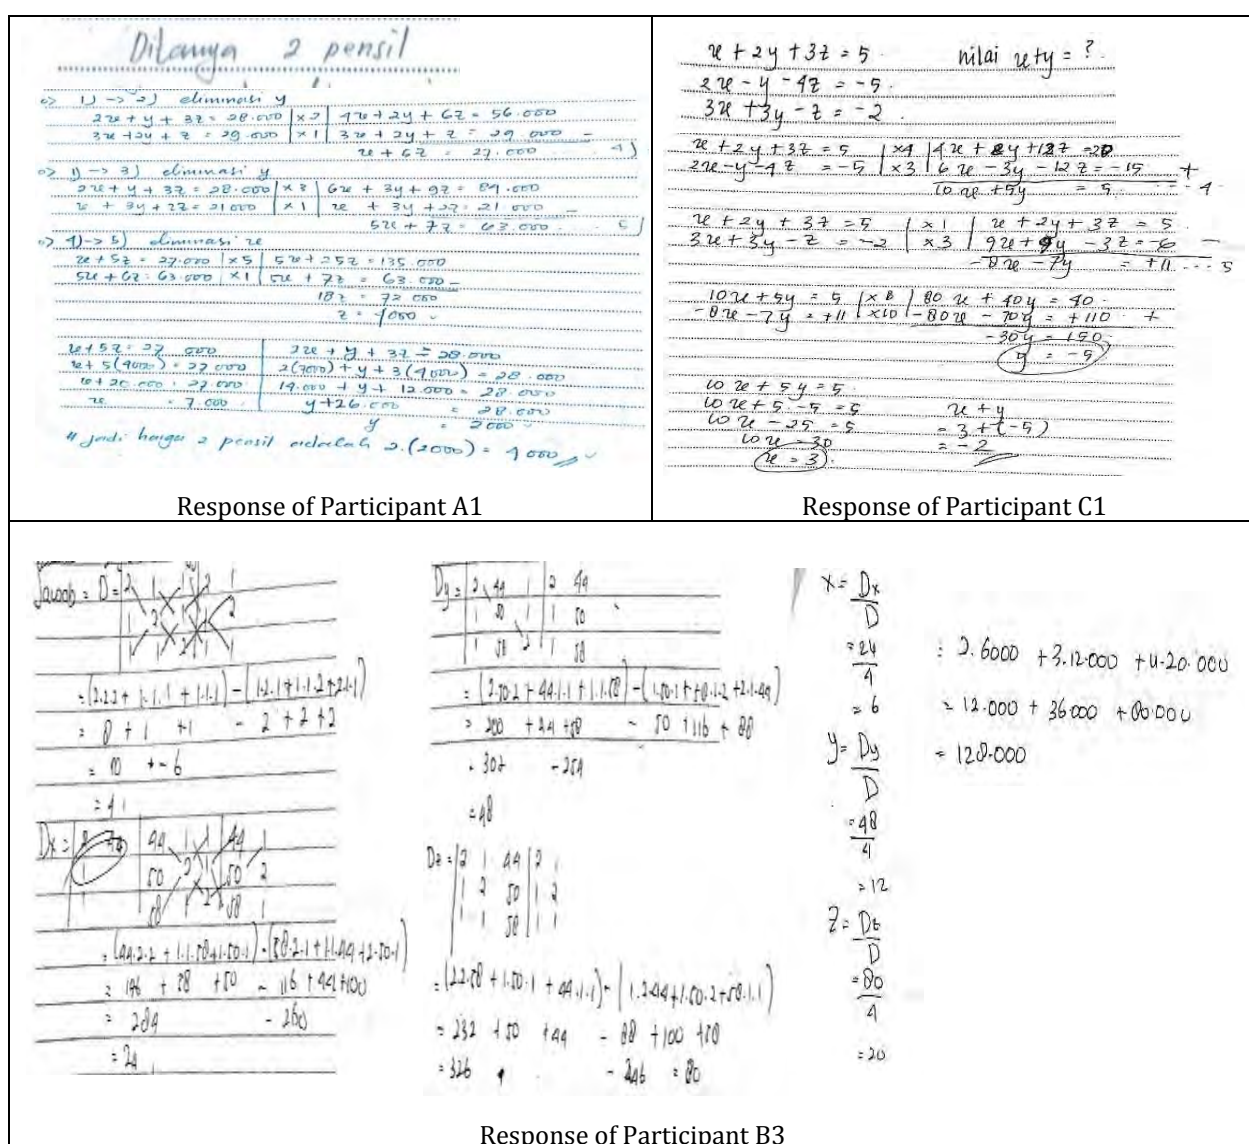 Ditanya 2 pensil
1) -> 2) eliminasi y
2x + y + 3z = 28.000 | x2 | 4x + 2y + 6z = 56.000
3x + 2y + z = 29.000 | x1 | 3x + 2y + z = 29.000 -
x + 5z = 27.000 ... 4)
1) -> 3) eliminasi y
2x + y + 3z = 28.000 | x3 | 6x + 3y + 9z = 84.000
x + 3y + 2z = 21.000 | x1 | x + 3y + 2z = 21.000 -
5x + 7z = 63.000 ... 5)
4) -> 5) eliminasi x
x + 5z = 27.000 | x5 | 5x + 25z = 135.000
5x + 6z = 63.000 | x1 | 5x + 7z = 63.000 -
18z = 72.000
z = 4000
x + 5z = 27.000 | 2x + y + 3z = 28.000
x + 5(4000) = 27.000 | 2(7000) + y + 3(4000) = 28.000
x + 20.000 = 27.000 | 14.000 + y + 12.000 = 28.000
x = 7.000 | y + 26.000 = 28.000
y = 2000
" jadi harga 2 pensil adalah 2.(2000) = 4000 //
Response of Participant A1
x + 2y + 3z = 5 nilai x+y = ?
2x - y - 4z = -5
3x + 3y - z = -2
x + 2y + 3z = 5 | x4 | 4x + 8y + 12z = 20
2x - y - 4z = -5 | x3 | 6x - 3y - 12z = -15 +
10x + 5y = 5 ... 4
x + 2y + 3z = 5 | x1 | x + 2y + 3z = 5
3x + 3y - z = -2 | x3 | 9x + 9y - 3z = -6 -
-8x - 7y = +11 ... 5
10x + 5y = 5 | x8 | 80x + 40y = 40
-8x - 7y = +11 | x10 | -80x - 70y = +110 +
-30y = 150
y = -5
10x + 5y = 5
10x + 5.-5 = 5 x + y
10x - 25 = 5 = 3 + (-5)
10x = 30 = -2
x = 3
Response of Participant C1
Jawab = D = | 2 1 1 | 2 1
1 2 1 | 1 2
1 1 2 | 1 1
= (2.2.2 + 1.1.1 + 1.1.1) - (1.2.1 + 1.1.2 + 2.1.1)
= 8 + 1 + 1 - 2 + 2 + 2
= 10 + - 6
= 4
Dx = | 44 1 1 | 44 1
50 2 1 | 50 2
58 1 2 | 58 1
= (44.2.2 + 1.1.58 + 1.50.1) - (58.2.1 + 1.1.44 + 2.50.1)
= 176 + 58 + 50 - 116 + 44 + 100
= 284 - 260
= 24
Dy = | 2 44 1 | 2 44
1 50 1 | 1 50
1 58 2 | 1 58
= (2.50.2 + 44.1.1 + 1.1.58) - (1.50.1 + 58.1.2 + 2.1.44)
= 200 + 44 + 58 - 50 + 116 + 88
= 302 - 254
= 48
Dz = | 2 1 44 | 2 1
1 2 50 | 1 2
1 1 58 | 1 1
= (2.2.58 + 1.50.1 + 44.1.1) - (1.2.44 + 1.50.2 + 58.1.1)
= 232 + 50 + 44 - 88 + 100 + 58
= 326 - 246 = 80
x = Dx
D
= 24
4
= 6
y = Dy
D
= 48
4
= 12
z = Dz
D
= 80
4
= 20
= 2.6000 + 3.12.000 + 4.20.000
= 12.000 + 36.000 + 80.000
= 128.000
Response of Participant B3